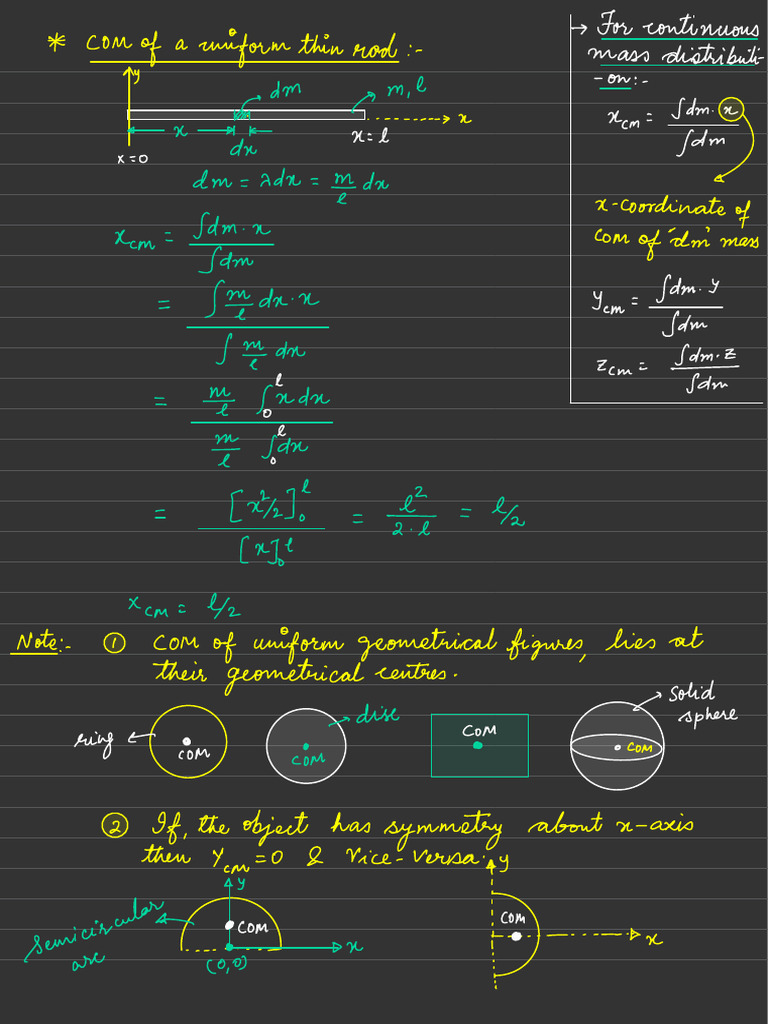 * COM of a uniform thin rod :-
y
dm
m, l
x
x
x = l
dx
x = 0
dm = λdx = m/l dx
x_cm = ∫dm·x / ∫dm
= ∫ m/l dx·x / ∫ m/l dx
= m/l ∫₀ˡ x dx / m/l ∫₀ˡ dx
= [x²/2]₀ˡ / [x]₀ˡ = l²/2·l = l/2
x_cm = l/2
→ For continuous
mass distributi-
-on :-
x_cm = ∫dm·x / ∫dm
x-coordinate of
COM of 'dm' mass
y_cm = ∫dm·y / ∫dm
z_cm = ∫dm·z / ∫dm
Note :- ① COM of uniform geometrical figures, lies at
their geometrical centres.
ring
COM
disc
COM
COM
solid
sphere
COM
② If, the object has symmetry about x-axis
then Y_cm = 0 & vice-versa.
y
COM
x
(0,0)
semicircular
arc
y
COM
x